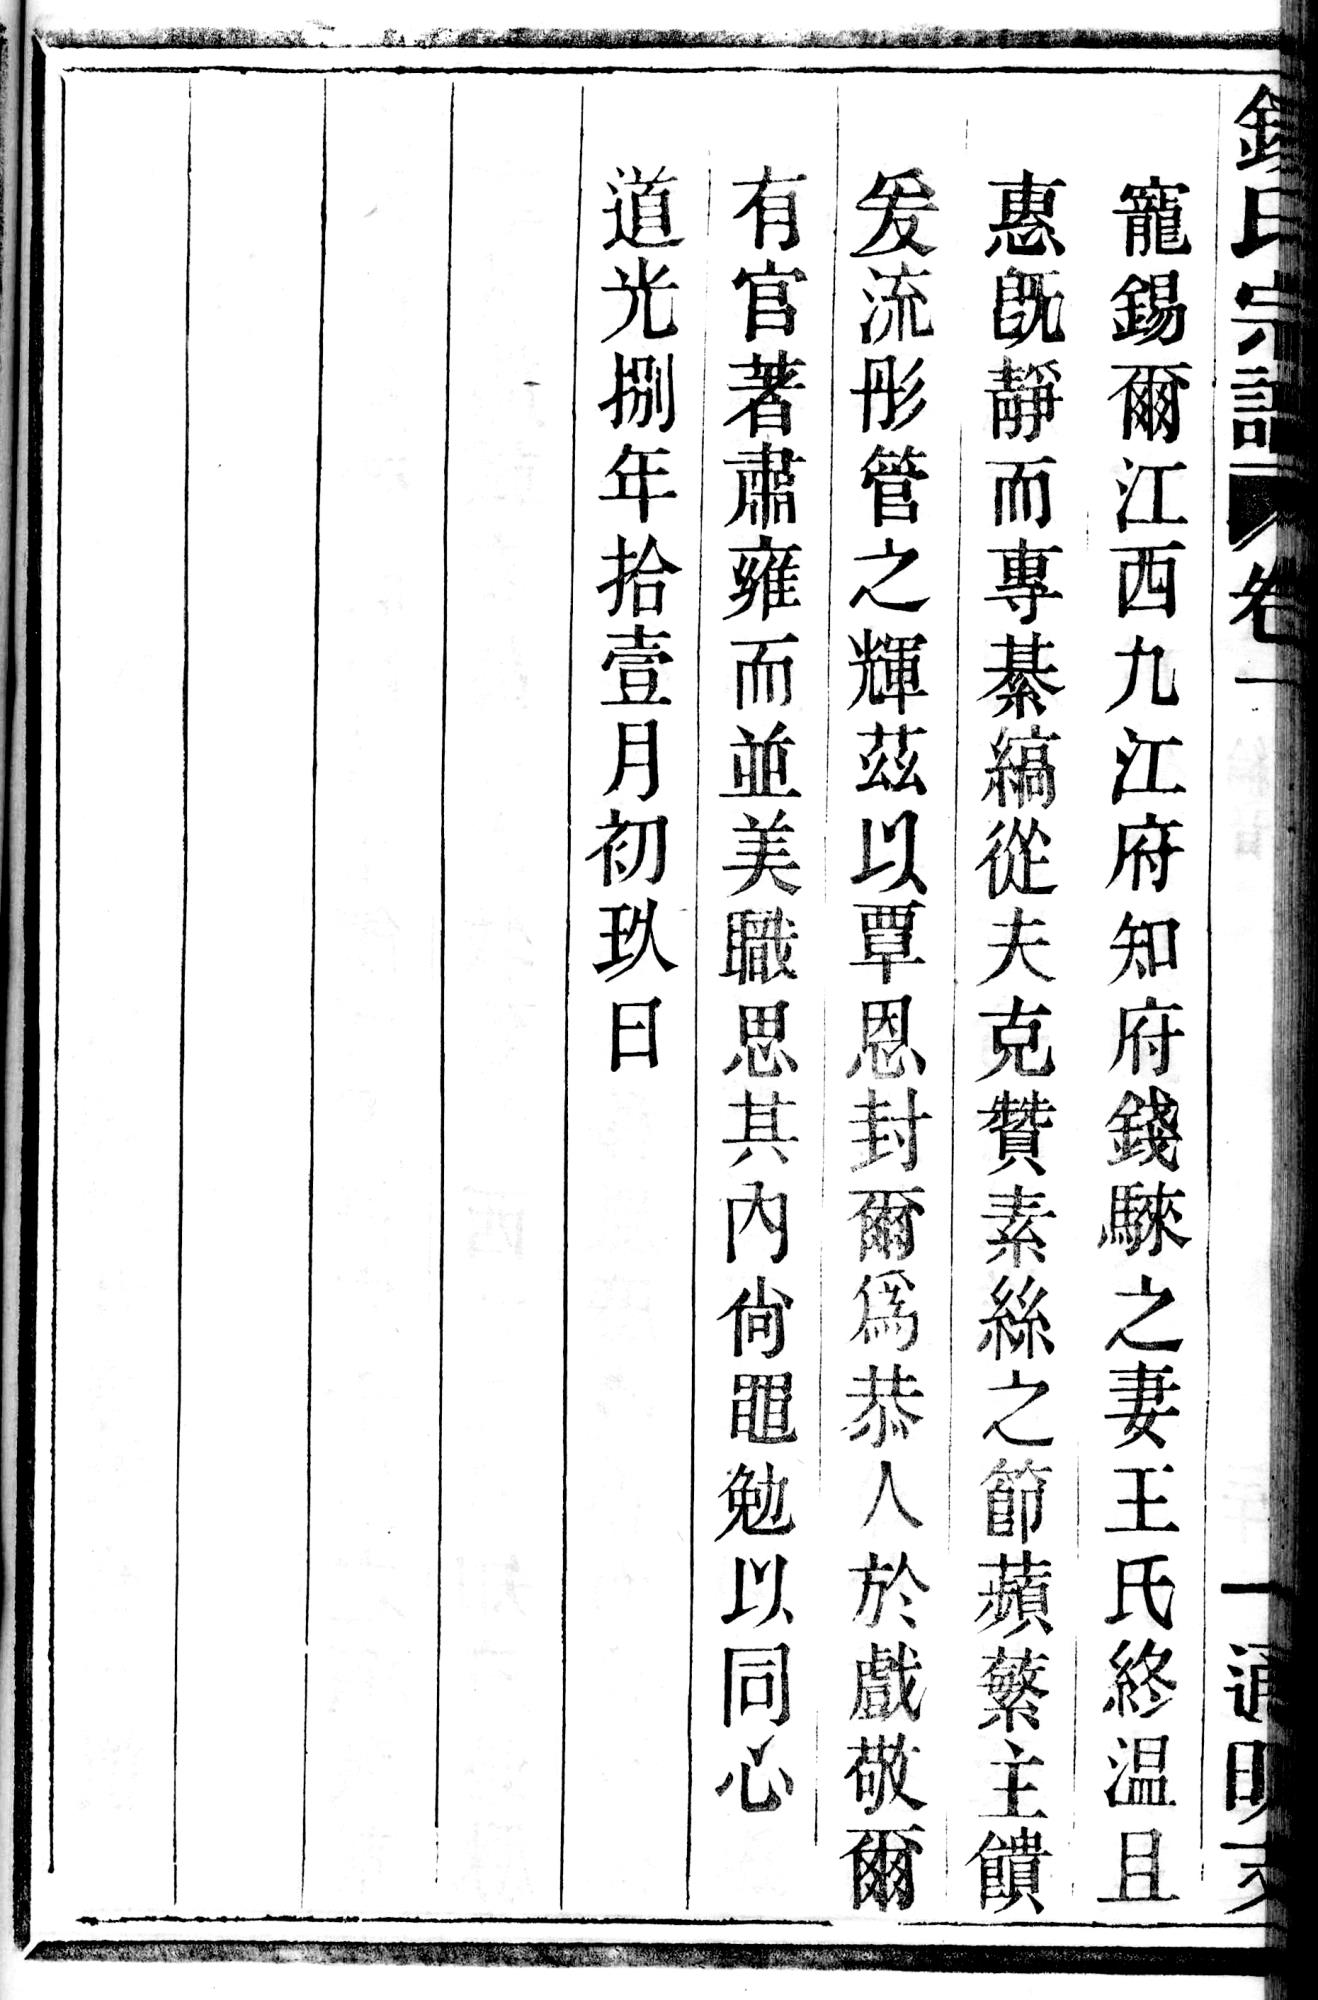 錢氏宗譜 卷一 一 通明支
寵錫爾江西九江府知府錢騋之妻王氏終温且
惠既靜而專綦縞從夫克贊素絲之節蘋蘩主饋
爰流彤管之輝茲以覃恩封爾爲恭人於戲敬爾
有官著肅雍而並美職思其內尙黽勉以同心
道光捌年拾壹月初玖日